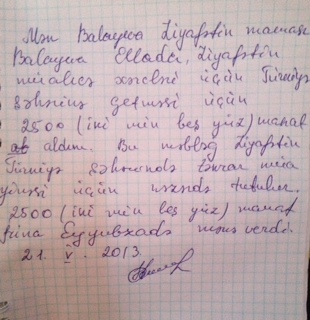 Mən Balayeva Ziyafətin maması
Balayeva Elladır, Ziyafətin
müalicə üçün Türkiyə
şəhərinə getməsi üçün
2500 (iki min beş yüz) manat
aldım. Bu məbləğ Ziyafətin
Türkiyə şəhərində təkrar müa
üçün tutulur.
2500 (iki min beş yüz) manat
Eyyubzadə mənə verdi.
21. V. 2013